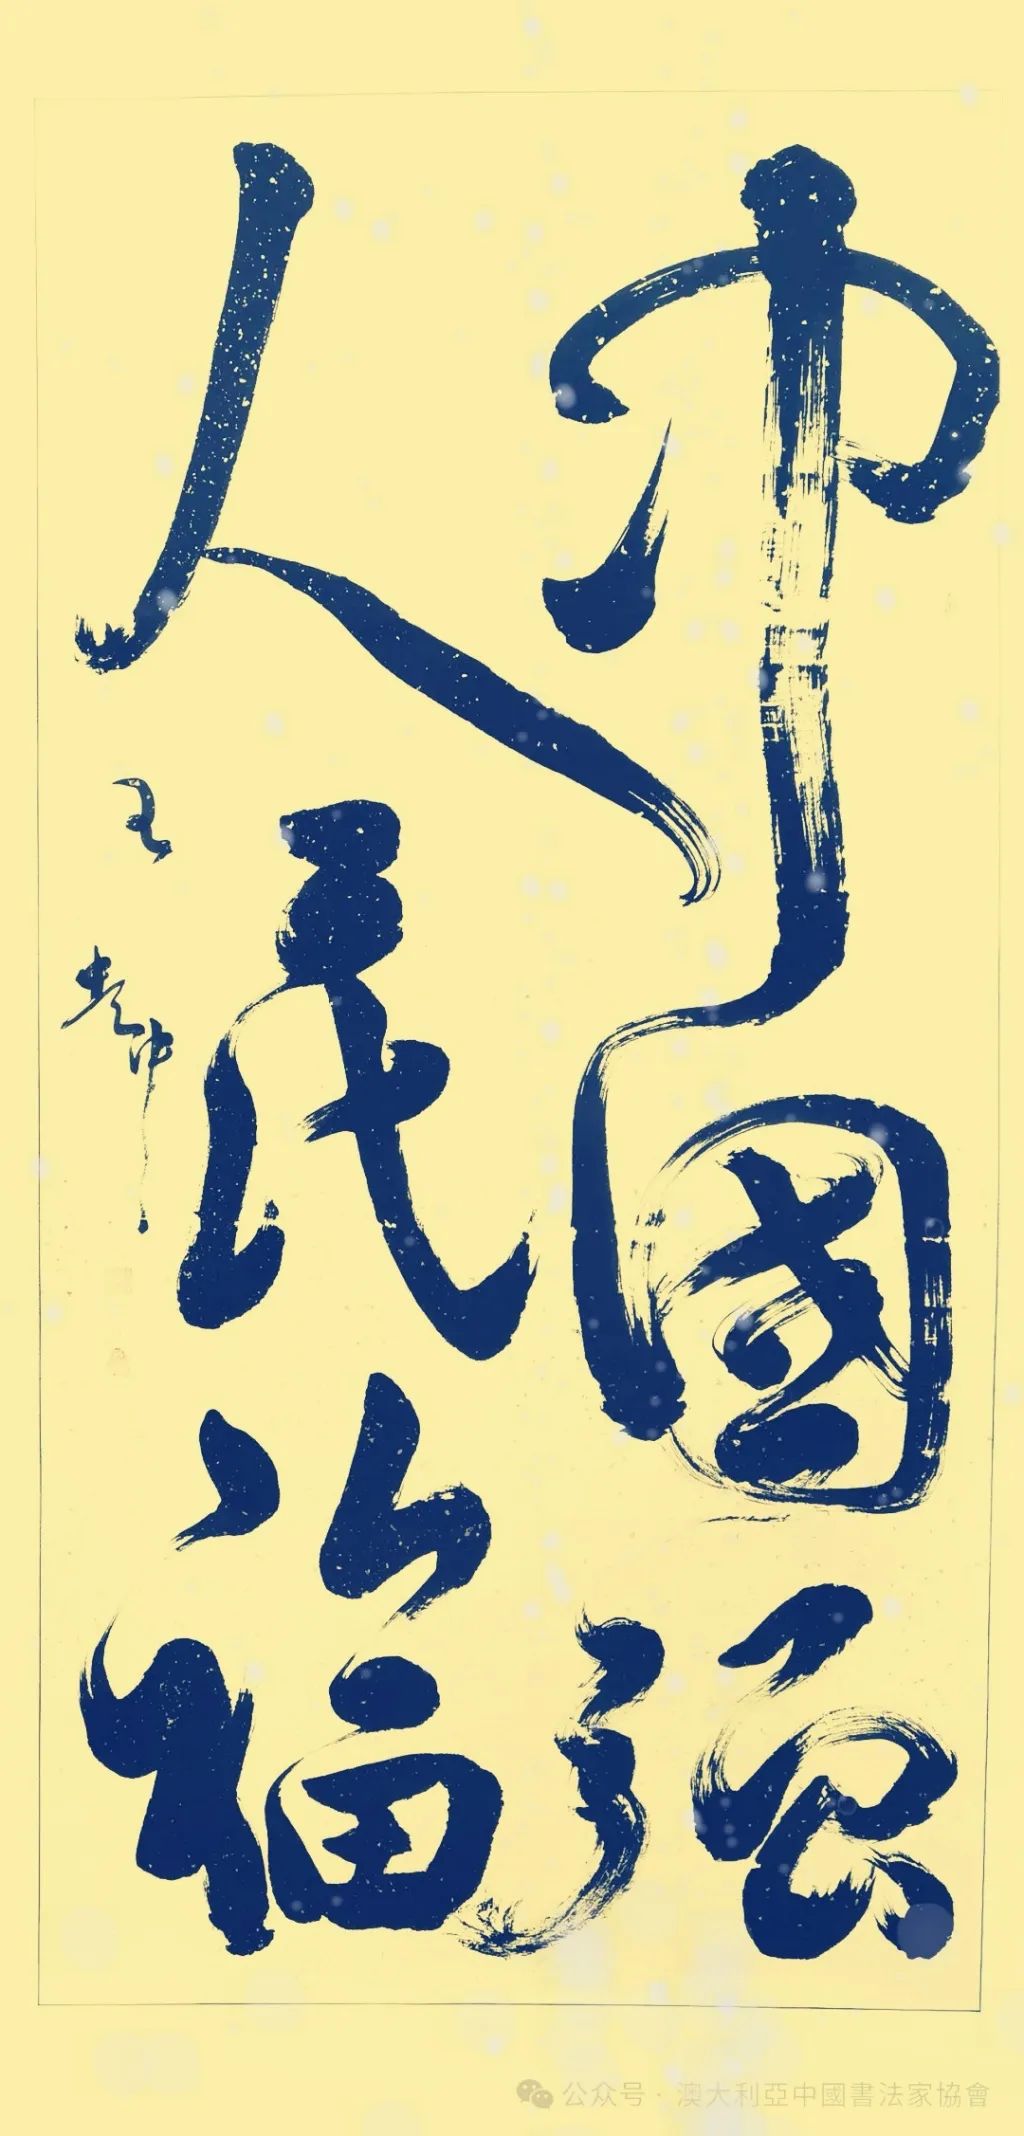 中國強
人民福
王
中
公众号 · 澳大利亞中國書法家協會